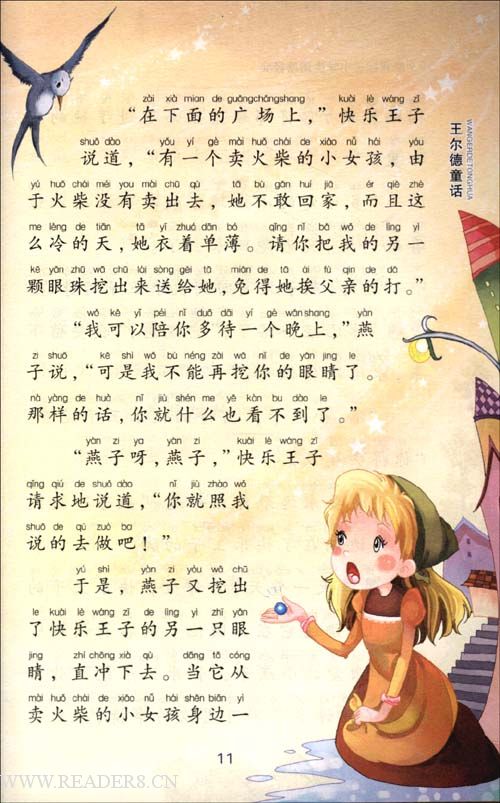 zài xià mian de guǎngchǎngshang kuài lè wáng zǐ
“在下面的广场上，”快乐王子
shuō dào yǒu yí gè mài huǒ chái de xiǎo nǚ hái yóu
说道，“有一个卖火柴的小女孩，由
yú huǒ chái méi you mài chū qù tā bù gǎn huí jiā ér qiě zhè
于火柴没有卖出去，她不敢回家，而且这
me lěng de tiān tā yī zhuó dān bó qǐng nǐ bǎ wǒ de lìng yì
么冷的天，她衣着单薄。请你把我的另一
kē yǎn zhū wā chū lái sòng gěi tā miǎn de tā ái fù qin de dǎ
颗眼珠挖出来送给她，免得她挨父亲的打。”
wǒ kě yǐ péi nǐ duō dāi yí gè wǎnshang yàn
“我可以陪你多待一个晚上，”燕
zi shuō kě shì wǒ bù néng zài wā nǐ de yǎn jing le
子说，“可是我不能再挖你的眼睛了。
nà yàng de huà nǐ jiù shén me yě kàn bu dào le
那样的话，你就什么也看不到了。”
yàn zi ya yàn zi kuài lè wáng zǐ
“燕子呀，燕子，”快乐王子
qǐng qiú de shuō dào nǐ jiù zhào wǒ
请求地说道，“你就照我
shuō de qù zuò ba
说的去做吧！”
yú shì yàn zi yòu wā chū
于是，燕子又挖出
le kuài lè wáng zǐ de lìng yì zhī yǎn
了快乐王子的另一只眼
jing zhí chōng xià qù dāng tā cóng
睛，直冲下去。当它从
mài huǒ chái de xiǎo nǚ hái shēn biān yì
卖火柴的小女孩身边一
王尔德童话
WANGERDETONGHUA
11
WWW.READER8.CN